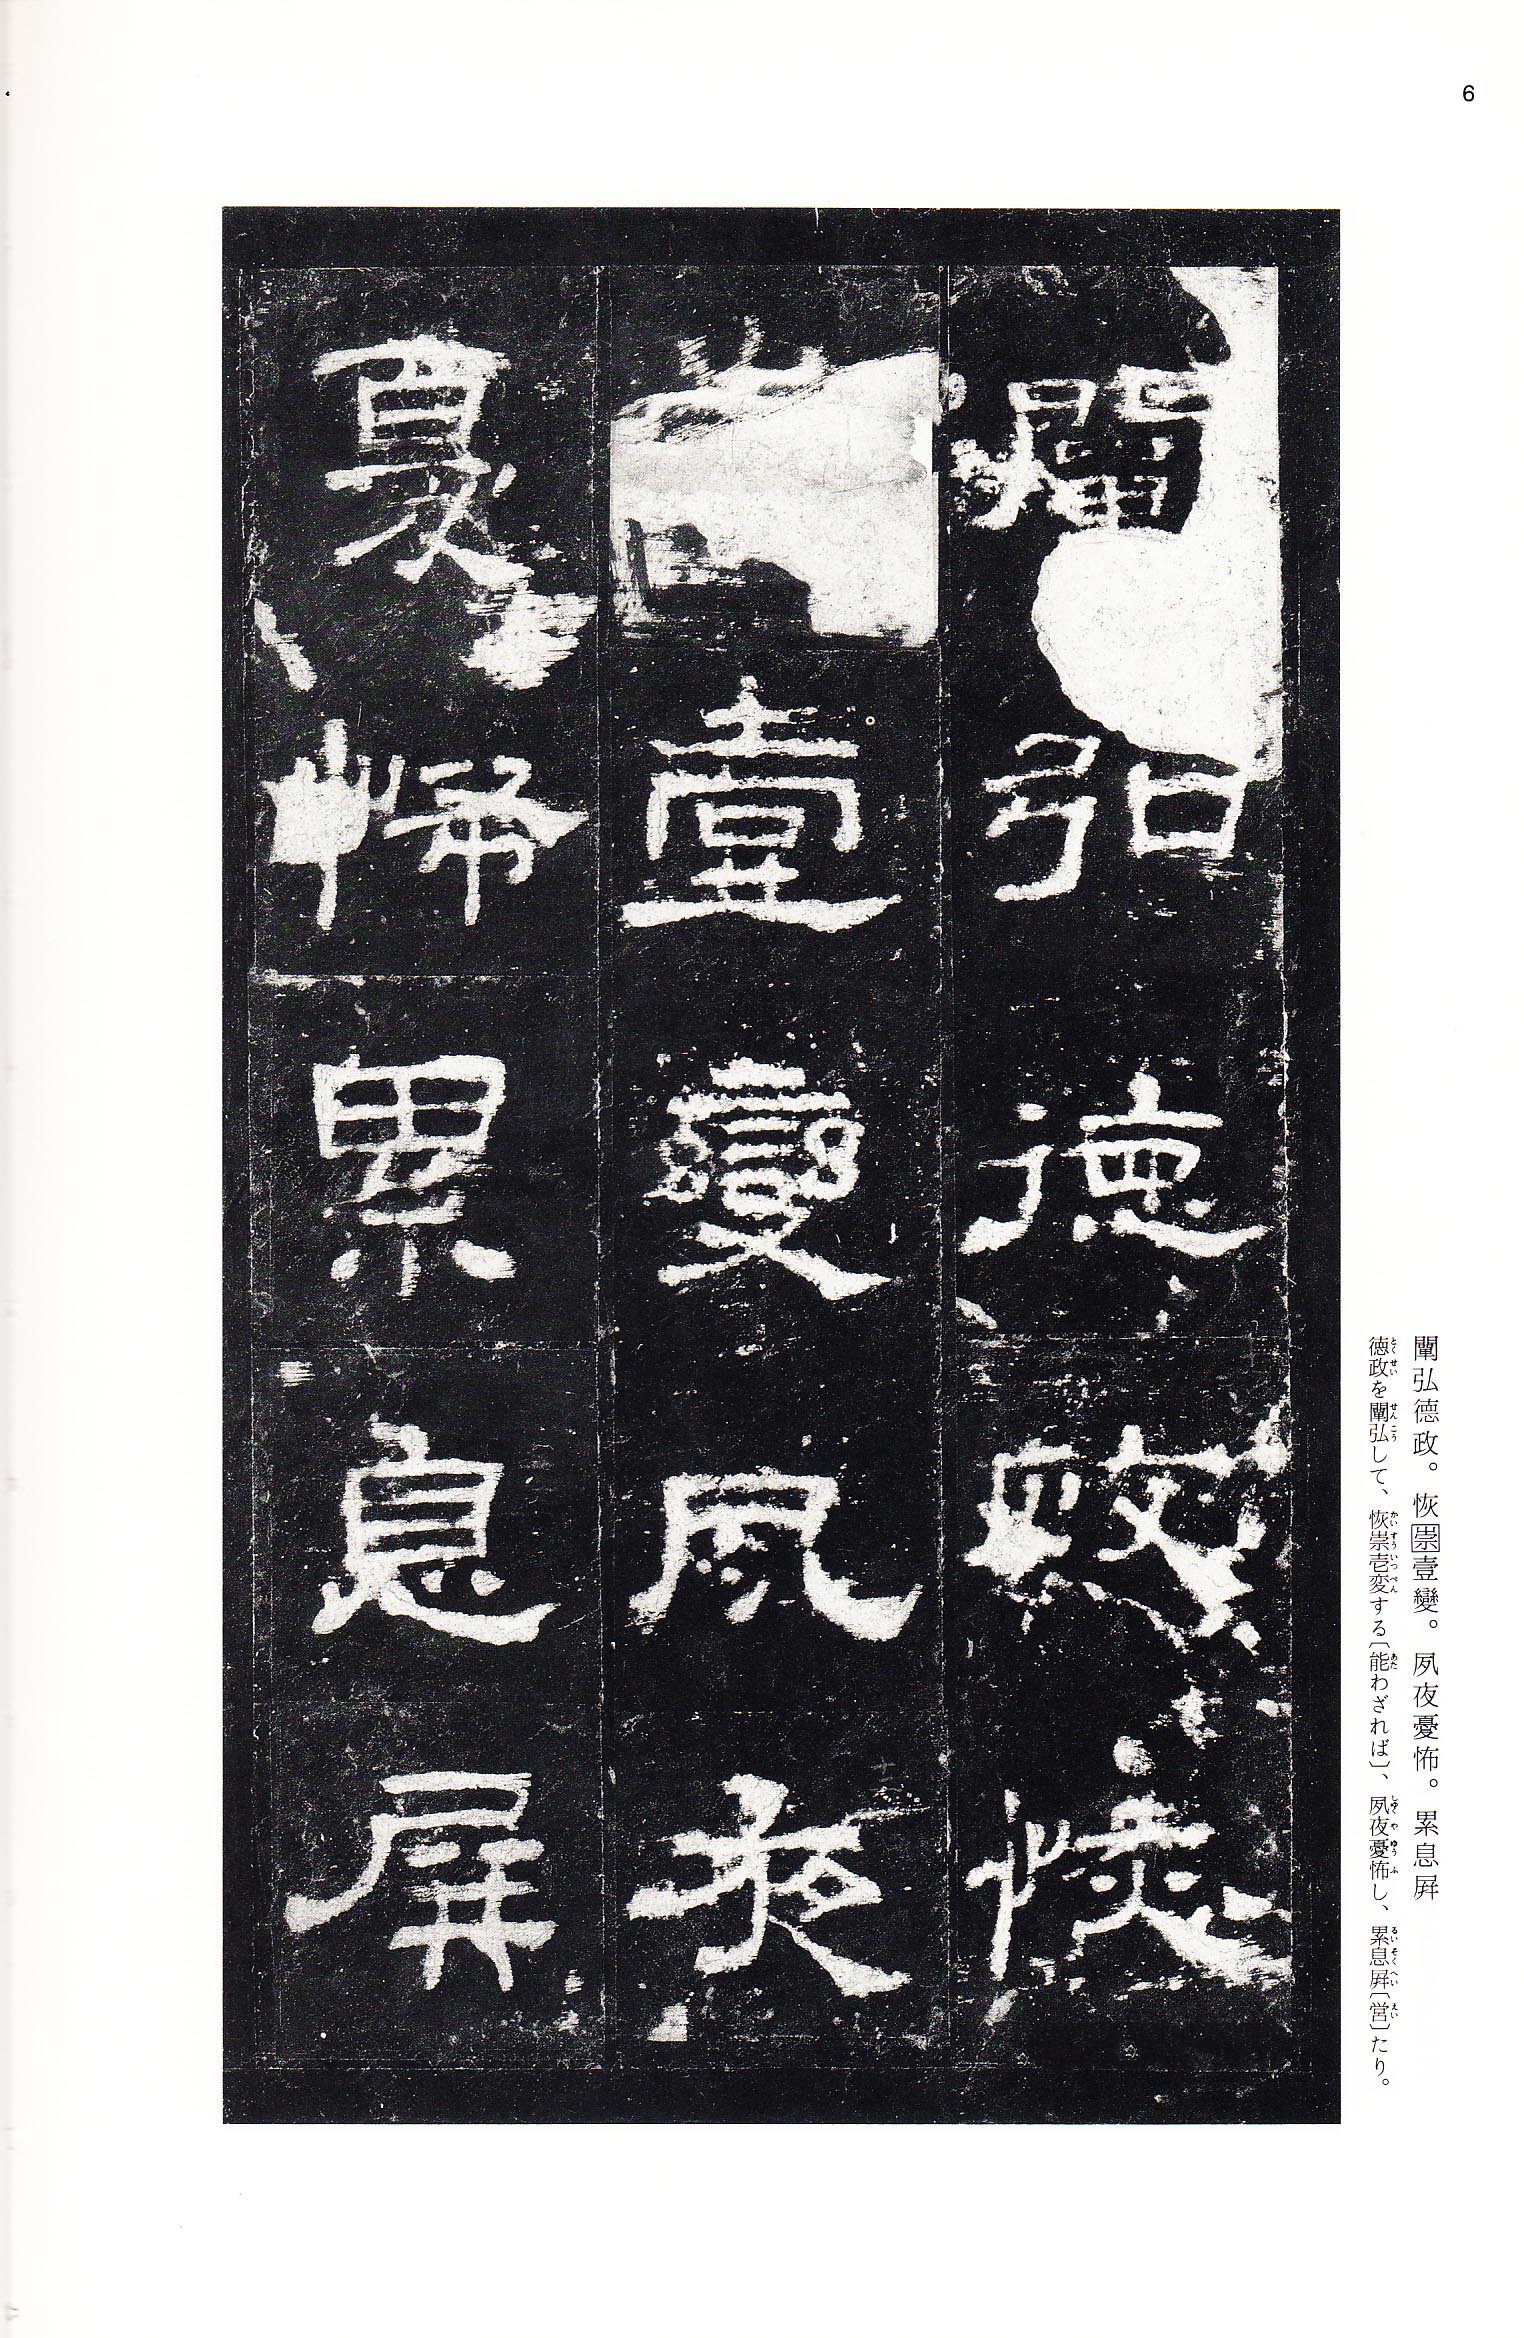 6
闡弘德政恢
崇壹變夙夜
憂怖累息屛
闡弘德政。恢崇壹變。夙夜憂怖。累息屛
徳政を闡弘して、恢崇壱変する〔能わざれば〕、夙夜憂怖し、累息屛〔営〕たり。